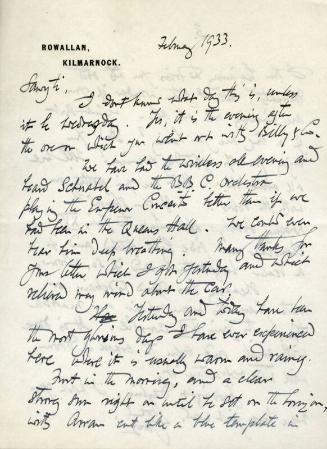 ROWALLAN,
KILMARNOCK.
February 1933.
I don't know what day this is, unless
it be Wednesday. Yes, it is the evening after
the one on which you went out with Billy & Co.
We have had the wireless all evening and
heard Schnabel and the B.B.C. Orchestra
playing the Emperor Concerto better than if we
had been in the Queens Hall. We could even
hear him deep breathing. Many thanks for
your letter which I got yesterday and which
relieved my mind about the car.
Yesterday and today have been
the most glorious days I have ever experienced
here where it is usually warm and rainy.
Frost in the morning, and a clear
strong sun right on until he set on the horizon,
with Arran cut like a blue template in